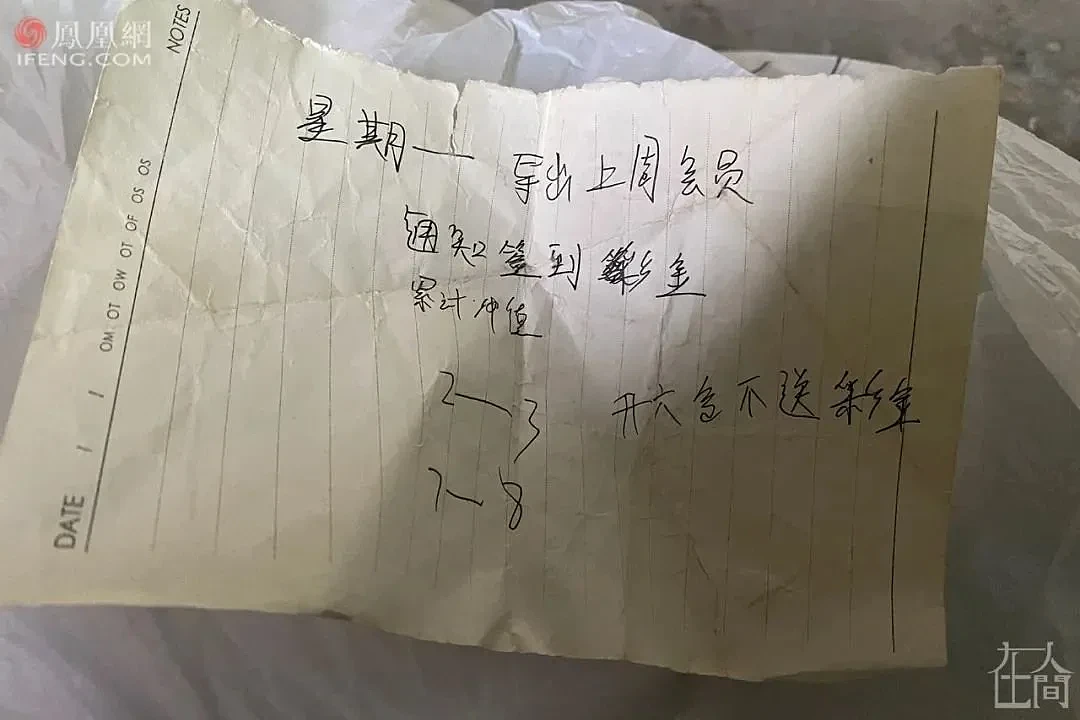 鳳凰網
IFENG.COM
NOTES
MO TO WO TO FO SO SO
DATE / /
星期一 导出上周会员
通知签到彩金
累计冲值
2—3 开六合不送彩金
7—8
在人間